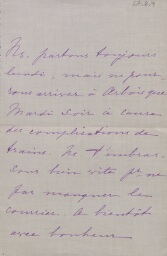 Ns. partons toujours
lundi, mais ne pou-
vons arriver à Arbois que
Mardi soir à cause
des complications de
trains. Je t'embras-
sons bien vite pr ne
pas manquer le
courrier. A bientôt
avec bonheur